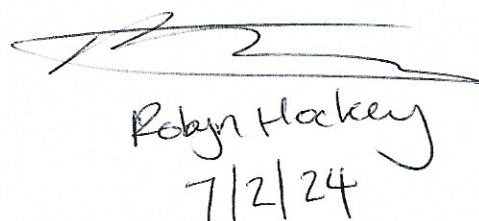 Robyn Hockey
7/2/24